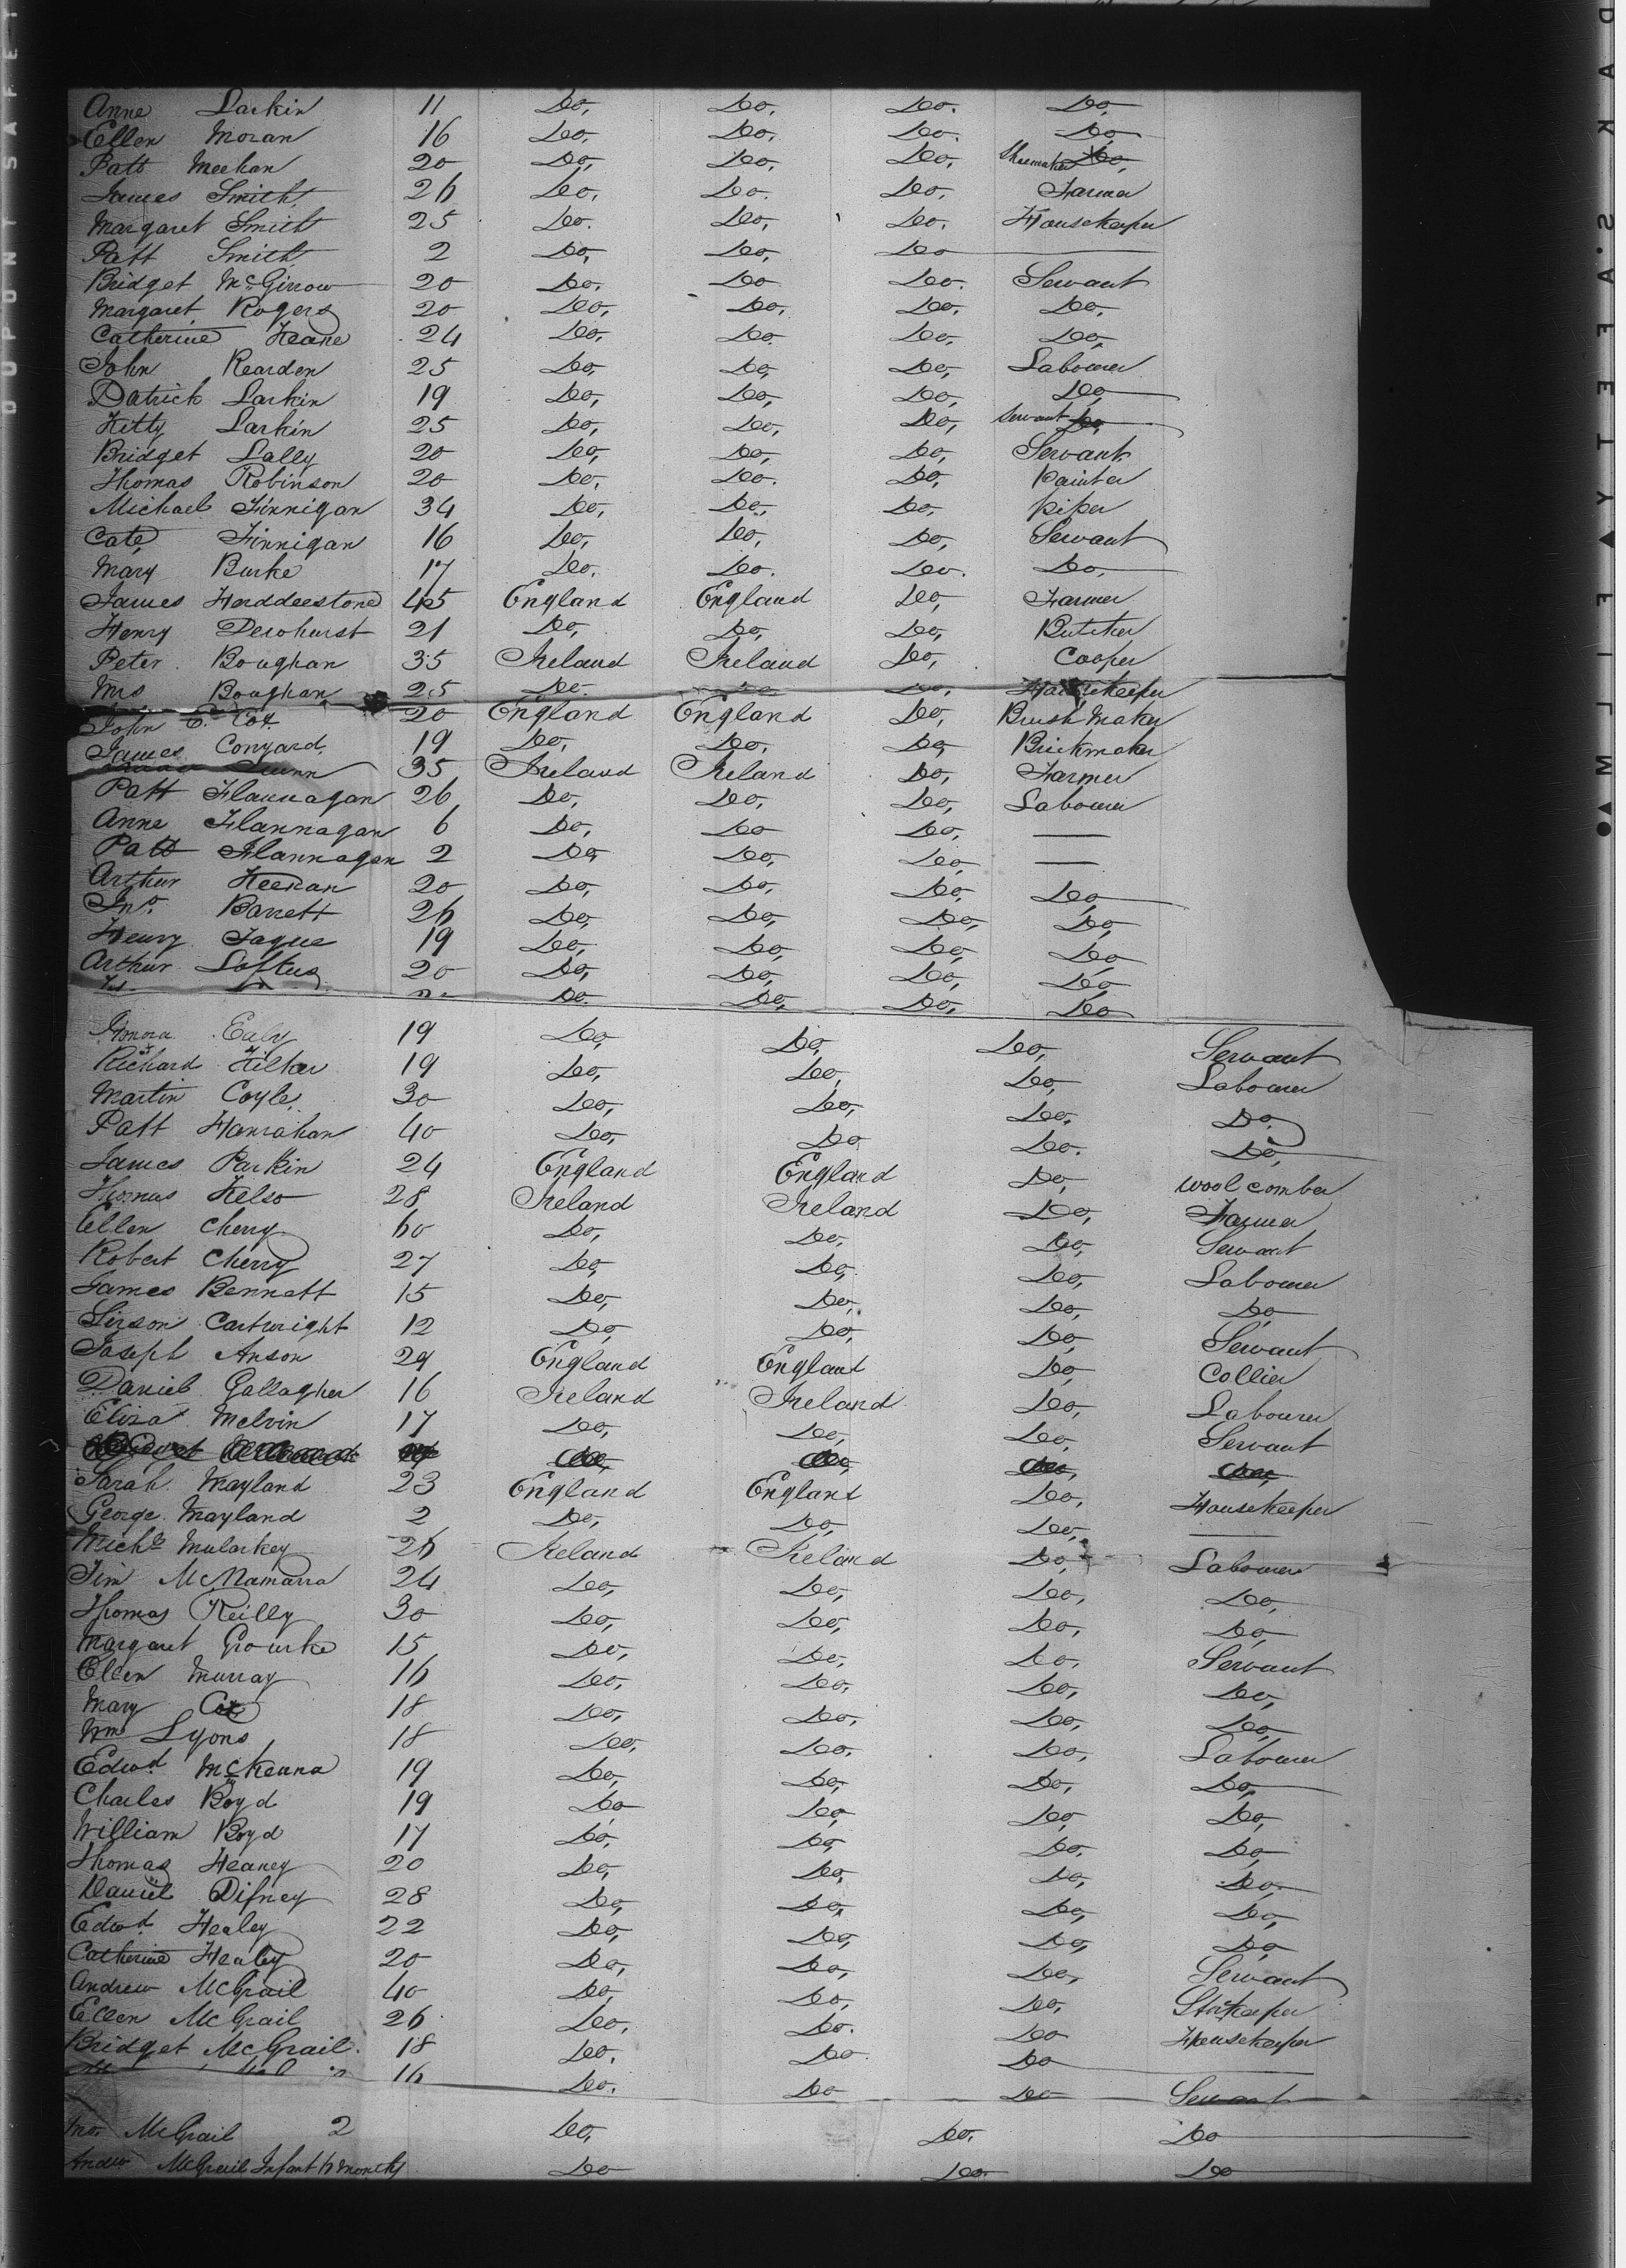 Anne Larkin 11 Do, Do, Do. Do
Ellen Moran 16 Do, Do, Do. Do
Patt Meehan 20 Do, Do, Do, Shoemaker Do,
James Smith 26 Do, Do. Do, Farmer
Margaret Smith 25 Do. Do, Do, Housekeeper
Patt Smith 2 Do, Do, Do
Bridget McGirrow 20 Do. Do Do. Servant
Margaret Rogers 20 Do, Do, Do, Do,
Catherine Keane 24 Do, Do. Do, Do,
John Rearden 25 Do, Do, Do, Labourer
Patrick Larkin 19 Do, Do, Do, Do,
Kitty Larkin 25 Do, Do, Do, Servant Do,
Bridget Lally 20 Do, Do, Do, Servant
Thomas Robinson 20 Do, Do. Do, Painter
Michael Finnigan 34 Do, Do, Do, piper
Cate Finnigan 16 Do, Do, Do, Servant
Mary Burke 17 Do. Do. Do. Do,
James Harddeestone 45 England England Do, Farmer
Henry Dewhurst 21 Do, Do, Do, Butcher
Peter Boughan 35 Ireland Ireland Do, Cooper
Mrs Boughan 25 Do. Do Do, Housekeeper
John E. Cox 20 England England Do, Brush Maker
James Conyard 19 Do, Do, Do, Brickmaker
Quinn 35 Ireland Ireland Do, Farmer
Patt Flannagan 26 Do, Do, Do, Labourer
Anne Flannagan 6 Do, Do Do,
Patt Flannagan 2 Do, Do, Do,
Arthur Keenan 20 Do, Do, Do, Do,
Jno. Barrett 26 Do, Do, Do, Do,
Henry Jague 19 Do, Do, Do, Do
Arthur Loftus 20 Do, Do, Do, Do,
Do. Do, Do, Do
Honora Ealy 19 Do, Do, Do, Servant
Richard Kilker 19 Do, Do, Do, Labourer
Martin Coyle 30 Do, Do, Do, Do
Patt Hanrahan 40 Do, Do Do. Do,
James Parkin 24 England England Do, wool comber
Thomas Kelso 28 Ireland Ireland Do, Farmer
Ellen Cherry 60 Do, Do, Do, Servant
Robert Cherry 27 Do, Do, Do, Labourer
James Bennett 15 Do, Do, Do, Do
Cartwright 12 Do, Do, Do, Servant
Joseph Anson 29 England England Do Collier
Daniel Gallagher 16 Ireland Ireland Do, Labourer
Eliza Melvin 17 Do, Do, Do, Servant
Sarah Mayland 23 England England Do, Housekeeper
George Mayland 2 Do, Do, Do,
Michl. Mularkey 26 Ireland Ireland Do, Labourer
Tim McNamarra 24 Do, Do, Do, Do,
Thomas Reilly 30 Do, Do, Do, Do,
Margaret Grourke 15 Do, Do, Do, Servant
Ellen Murray 16 Do, Do, Do, Do,
Mary Cox 18 Do, Do, Do, Do,
Wm Lyons 18 Do, Do. Do, Labourer
Edwd McKenna 19 Do, Do, Do, Do,
Charles Boyd 19 Do Do, Do, Do,
William Boyd 17 Do, Do, Do, Do,
Thomas Heaney 20 Do, Do, Do, Do,
Daniel Difney 28 Do, Do, Do, Do,
Edwd. Healey 22 Do, Do, Do, Do
Catherine Healey 20 Do, Do, Do, Servant
Andrew McGrail 40 Do, Do, Do, Storekeeper
Ellen McGrail 26 Do, Do. Do Housekeeper
Bridget McGrail 18 Do, Do. Do
16 Do. Do Do Servant
McGrail 2 Do, Do, Do
Andw McGrail Infant 6 months Do Do. Do